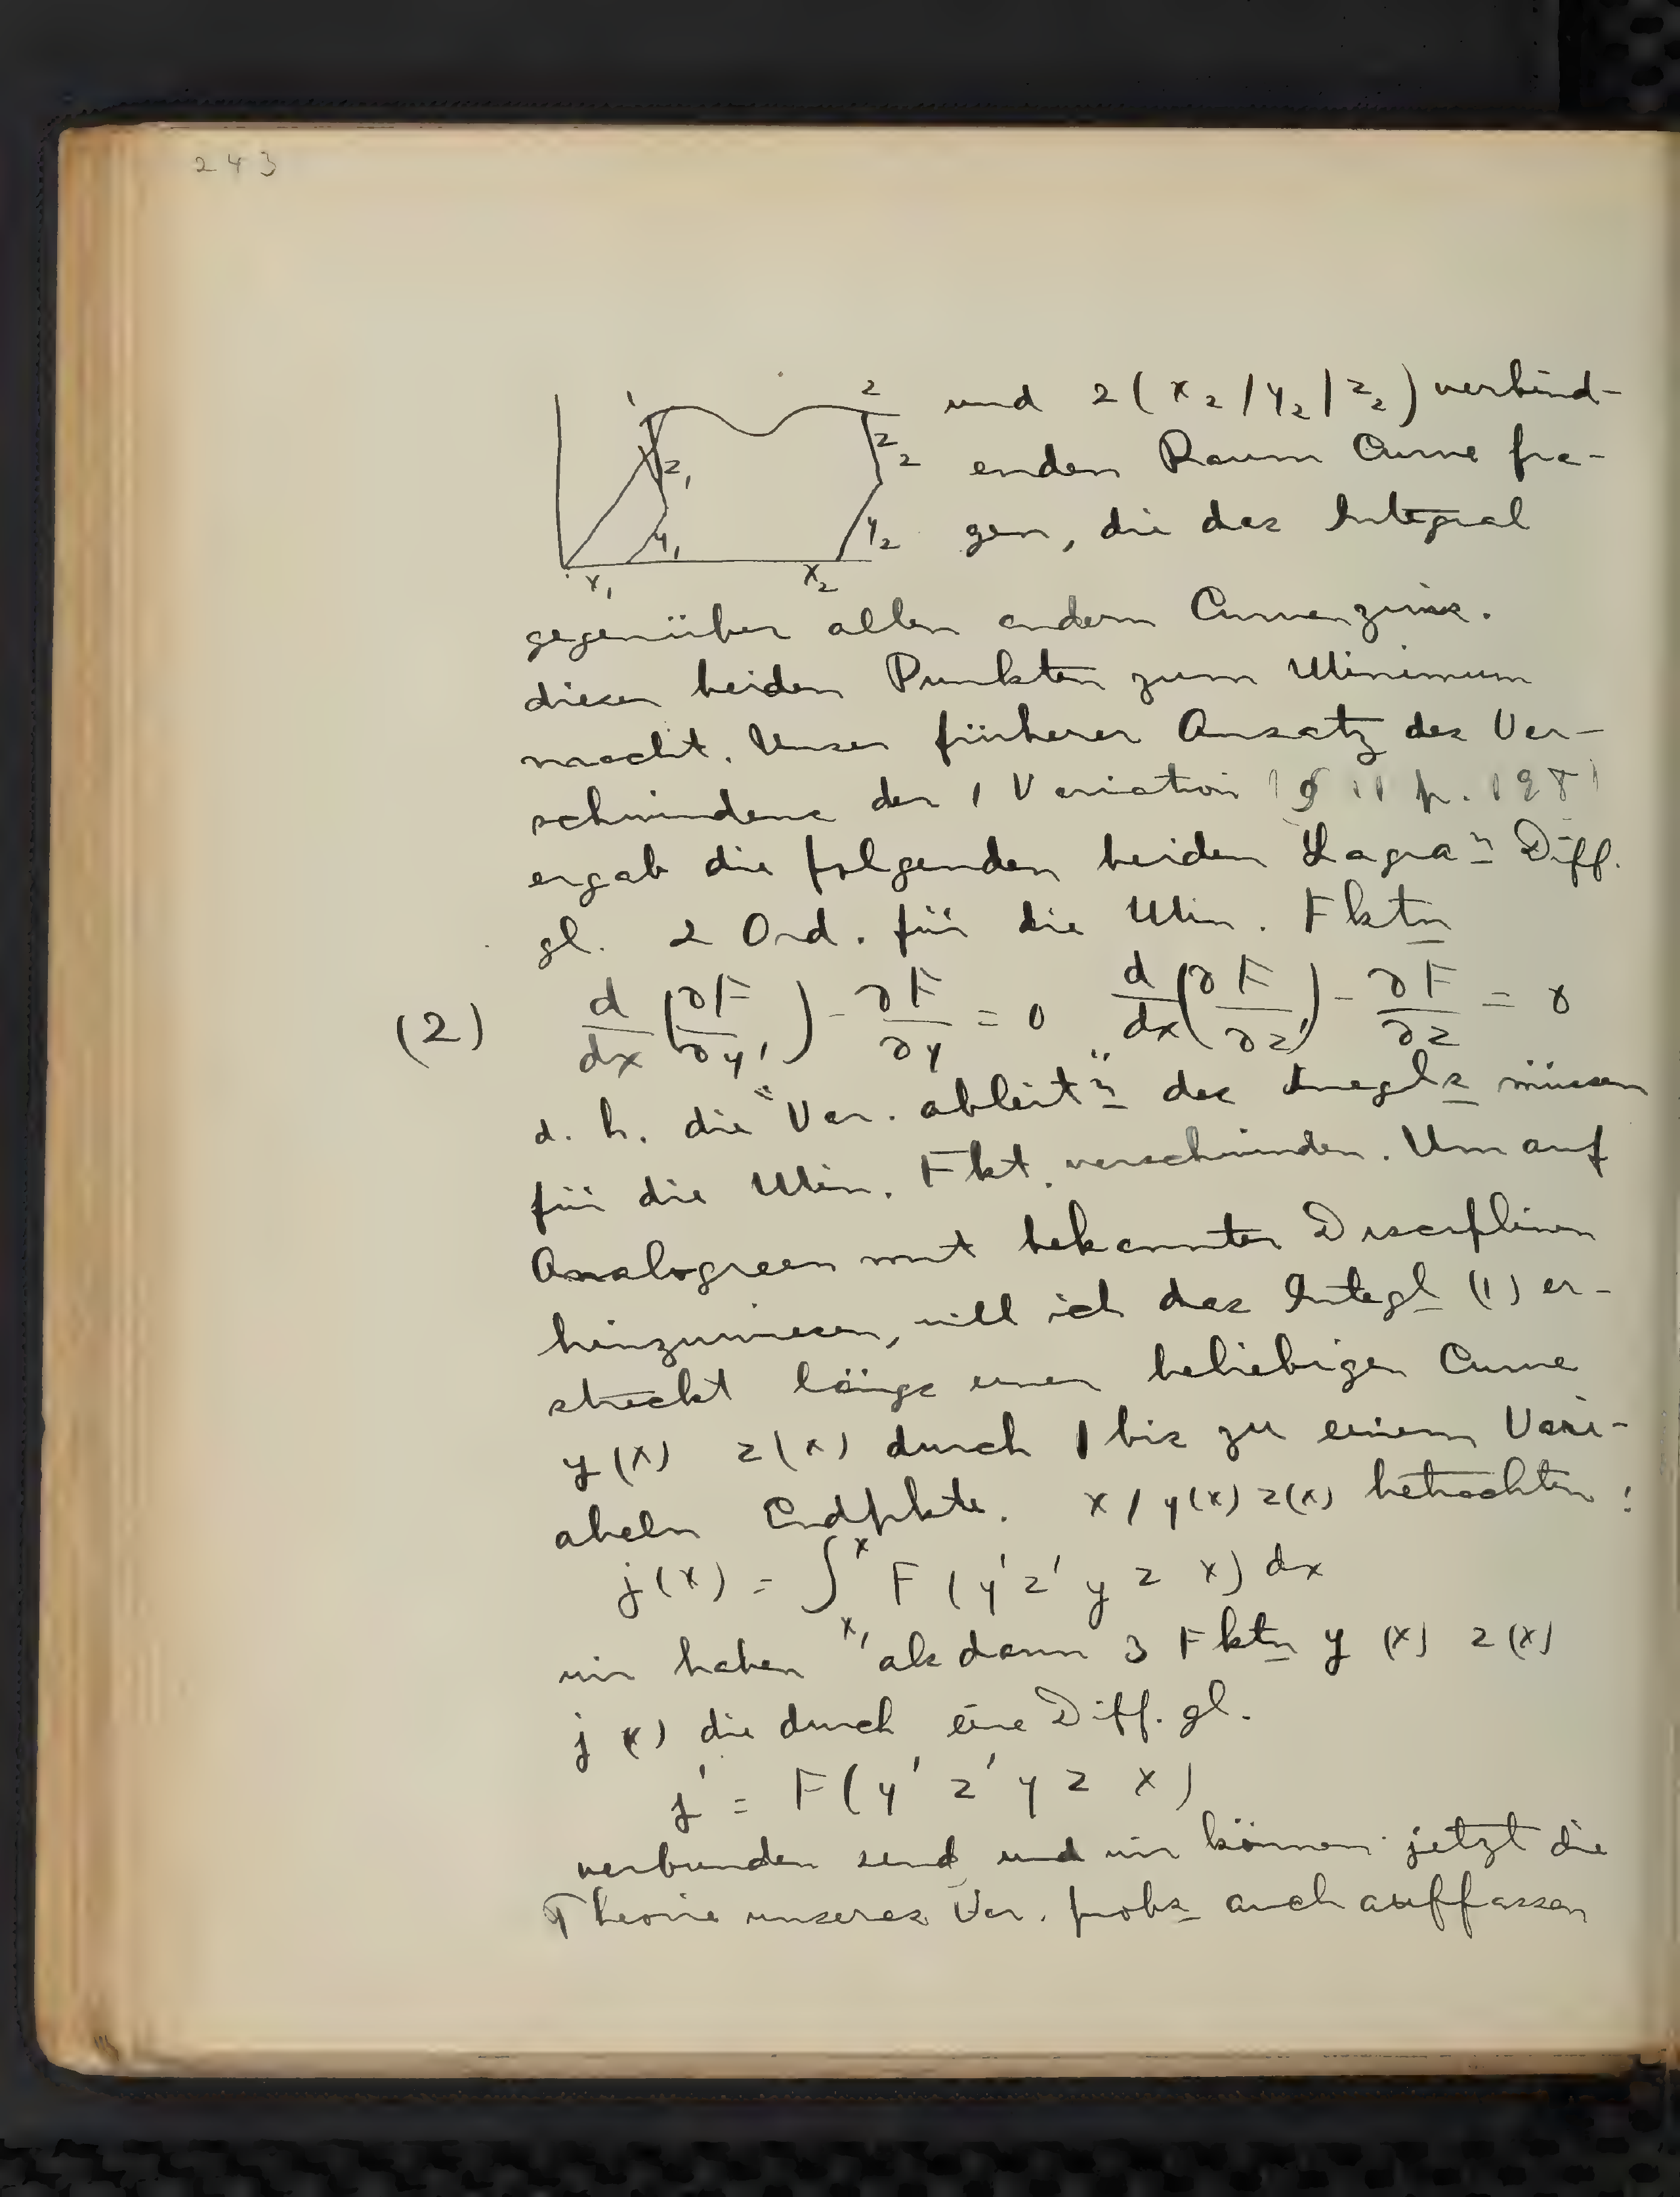 243
1 2
und 2(x₂/y₂/z₂) verbind-
z₁ z₂
enden Raum Curve fra-
y₁ y₂
gen, die das Integral
x₁ x₂
gegenüber allen andern Curven zwisc.
diesen beiden Punkten zum Minimum
macht. Unser früherer Ansatz des Ver-
schwindens der 1 Variation (§ 11 p. 198)
ergab die folgenden beiden Lagra⁠n Diff.
gl. 2 Ord. für die Min. Fktn
(2) d/dx (∂F/∂y') - ∂F/∂y = 0 d/dx (∂F/∂z') - ∂F/∂z = 0
d. h. die "Var. ableit n" des Integls müssen
für die Min. Fkt. verschwinden. Um auf
Analogieen mit bekannten Disciplinen
hinzuweisen, will ich das Integl (1) er-
streckt längs einer beliebigen Curve
y(x) z(x) durch 1 bis zu einem Vari-
abeln Endpkte. x/y(x) z(x) betrachten:
j(x) = ∫ₓ₁ˣ F(y' z' y z x) dx
wir haben alsdann 3 Fktn y(x) z(x)
j(x) die durch eine Diff. gl.
j' = F(y' z' y z x)
verbunden sind und wir können jetzt die
Theorie unseres Var. probs auch auffassen